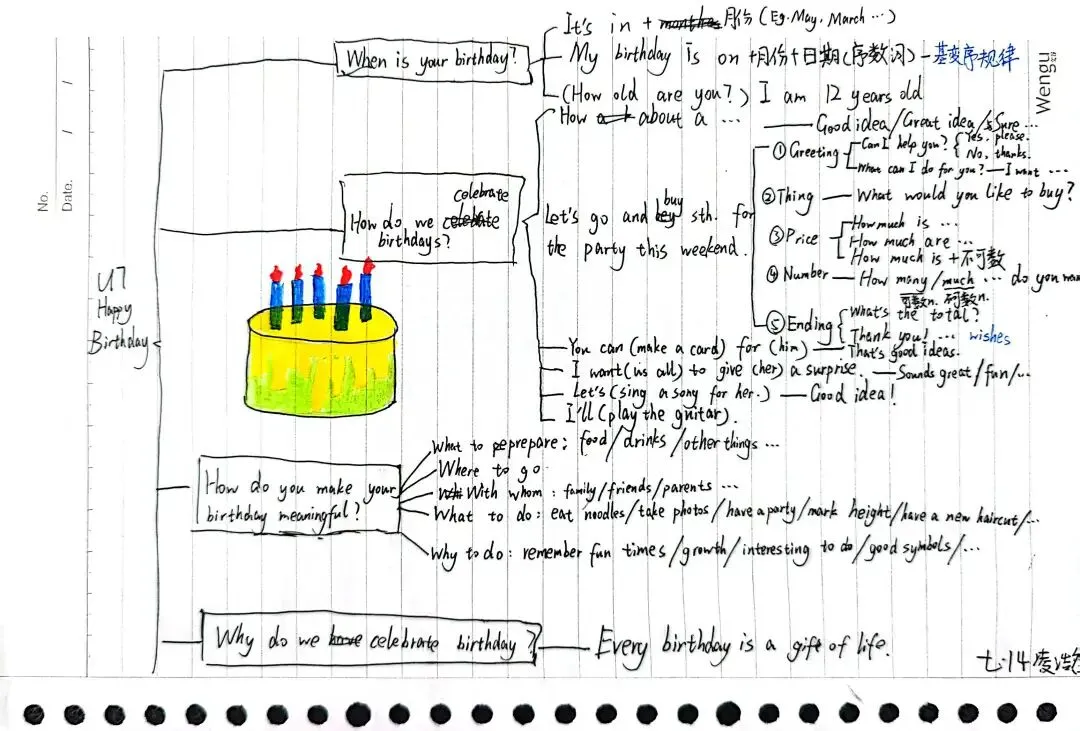 No.
Date.
Wengu
U7
Happy
Birthday
When is your birthday?
It's in + 月份 (Eg. May, March ...)
My birthday is on +月份+日期(序数词) - 基变序规律
(How old are you?) I am 12 years old
How do we celebrate
birthdays?
How about a ...
Good idea/Great idea/Sure ...
Let's go and buy sth. for
the party this weekend.
① Greeting
Can I help you? Yes, please.
No, thanks.
What can I do for you? — I want ...
② Thing — What would you like to buy?
③ Price
How much is ...
How much are ...
How much is + 不可数
④ Number — How many/much ... do you wan
可数n. 不可数n.
⑤ Ending
What's the total?
Thank you! ... wishes
You can (make a card) for (him) — That's good ideas.
I want (us all) to give (her) a surprise. — Sounds great/fun/...
Let's (sing a song for her.) — Good idea!
I'll (play the guitar).
How do you make your
birthday meaningful?
What to prepare: food/drinks/other things ...
Where to go
With whom: family/friends/parents ...
What to do: eat noodles/take photos/have a party/mark height/have a new haircut/...
Why to do: remember fun times/growth/interesting to do/good symbols/...
Why do we celebrate birthday?
Every birthday is a gift of life.
七.14 凌